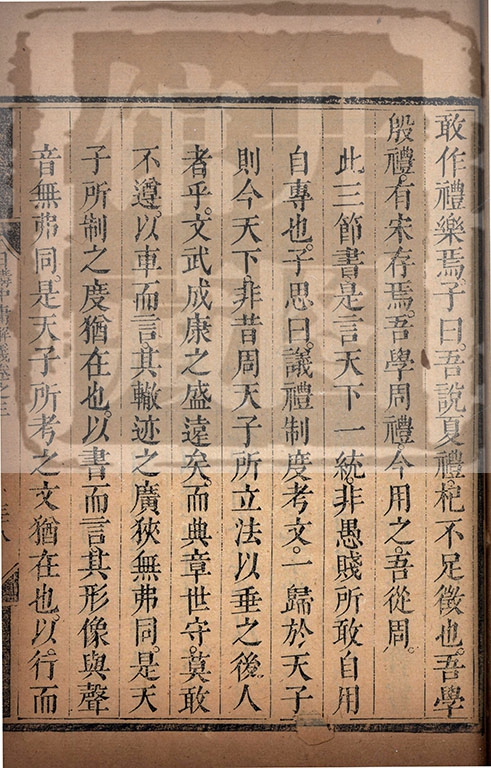 敢作禮樂焉。子曰。吾說夏禮。杞不足徵也。吾學
殷禮。有宋存焉。吾學周禮。今用之。吾從周。
此三節書是言天下一統。非愚賤所敢自用
自專也。子思曰。議禮制度考文。一歸於天子。
則今天下。非昔周天子所立法以垂之後人
者乎。文武成康之盛遠矣。而典章世守。莫敢
不遵。以車而言。其轍迹之廣狹無弗同。是天
子所制之度猶在也。以書而言。其形像與聲
音無弗同。是天子所考之文猶在也。以行而